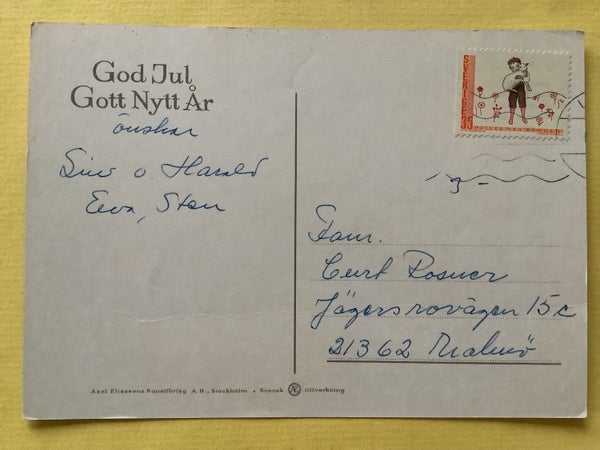 God Jul
Gott Nytt År
önskar
Siw o. Harald
Ewa, Sten
SVERIGE 35
- 3 -
Fam.
Curt Rosner
Jägersrovägen 15c
21362 Malmö
Axel Eliassons Konstförlag A.B., Stockholm. • Svensk Æ tillverkning